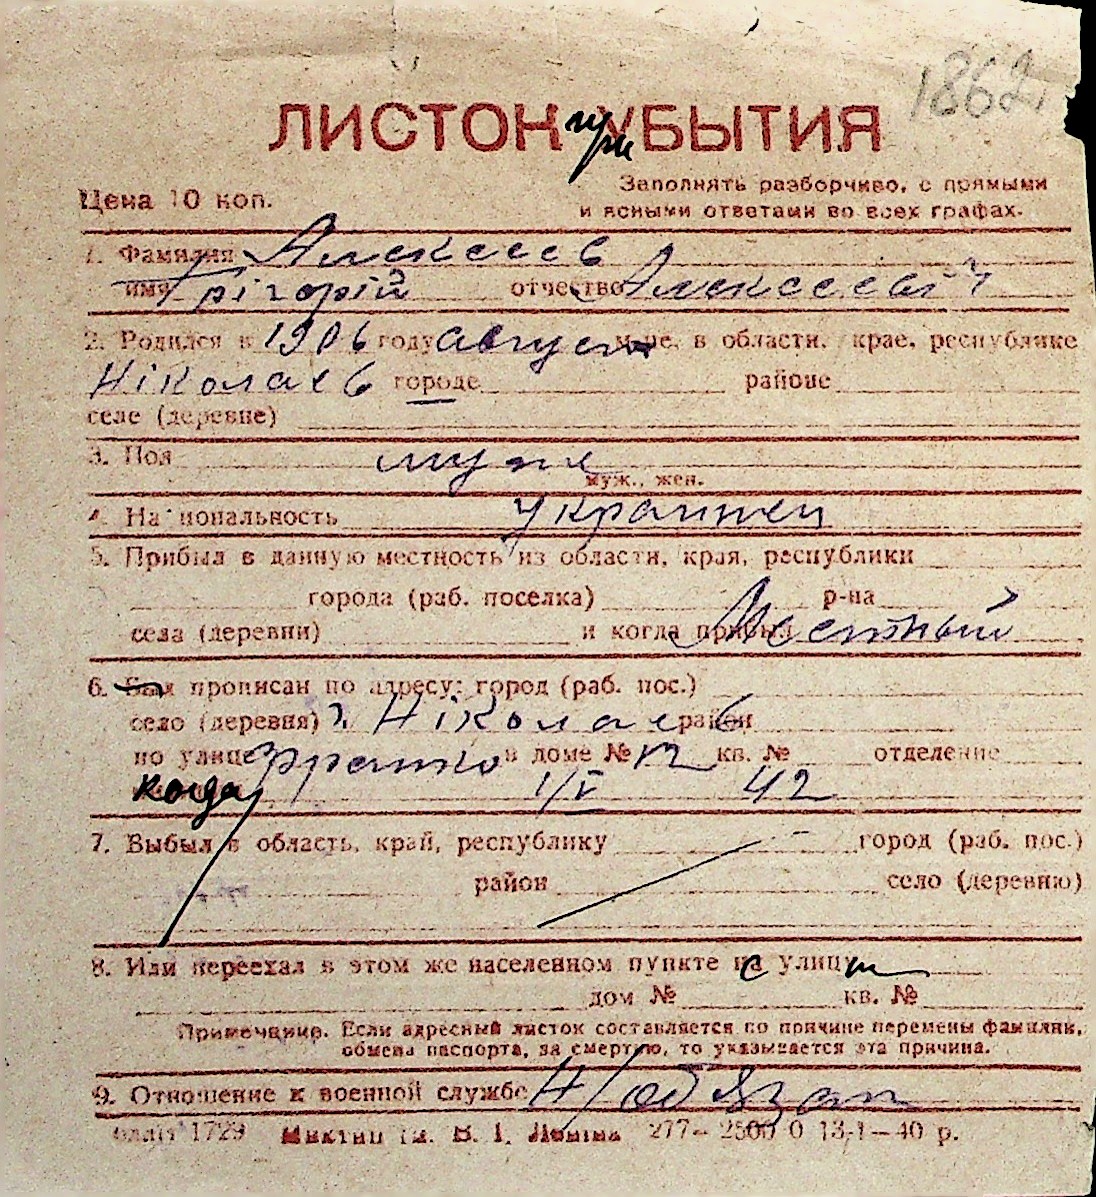 1862
ЛИСТОК при УБЫТИЯ
Цена 10 коп.
Заполнять разборчиво, с прямыми
и ясными ответами во всех графах.
1. Фамилия Алексеев
имя Грігорій отчество Алексеевіч
2. Родился в 1906 году август м-це, в области, крае, республике
Ніколаев городе районе
село (деревне)
3. Пол муж
муж., жен.
4. Национальность украинец
5. Прибыл в данную местность из области, края, республики
города (раб. поселка) р-на
села (деревни) и когда прибыл Местный
6. Был прописан по адресу: город (раб. пос.)
село (деревня) г. Ніколаев район
по улице Франко в доме № 12 кв. № отделение
когда 1/V 42
7. Выбыл в область, край, республику город (раб. пос.)
район село (деревню)
8. Или переехал в этом же населенном пункте с улицы
дом № кв. №
Примечание. Если адресный листок составляется по причине перемены фамилии,
обмена паспорта, за смертью, то указывается эта причина.
9. Отношение к военной службе Н/обязан
1729 им. В. І. Леніна 277— 2500 0 13-1—40 р.